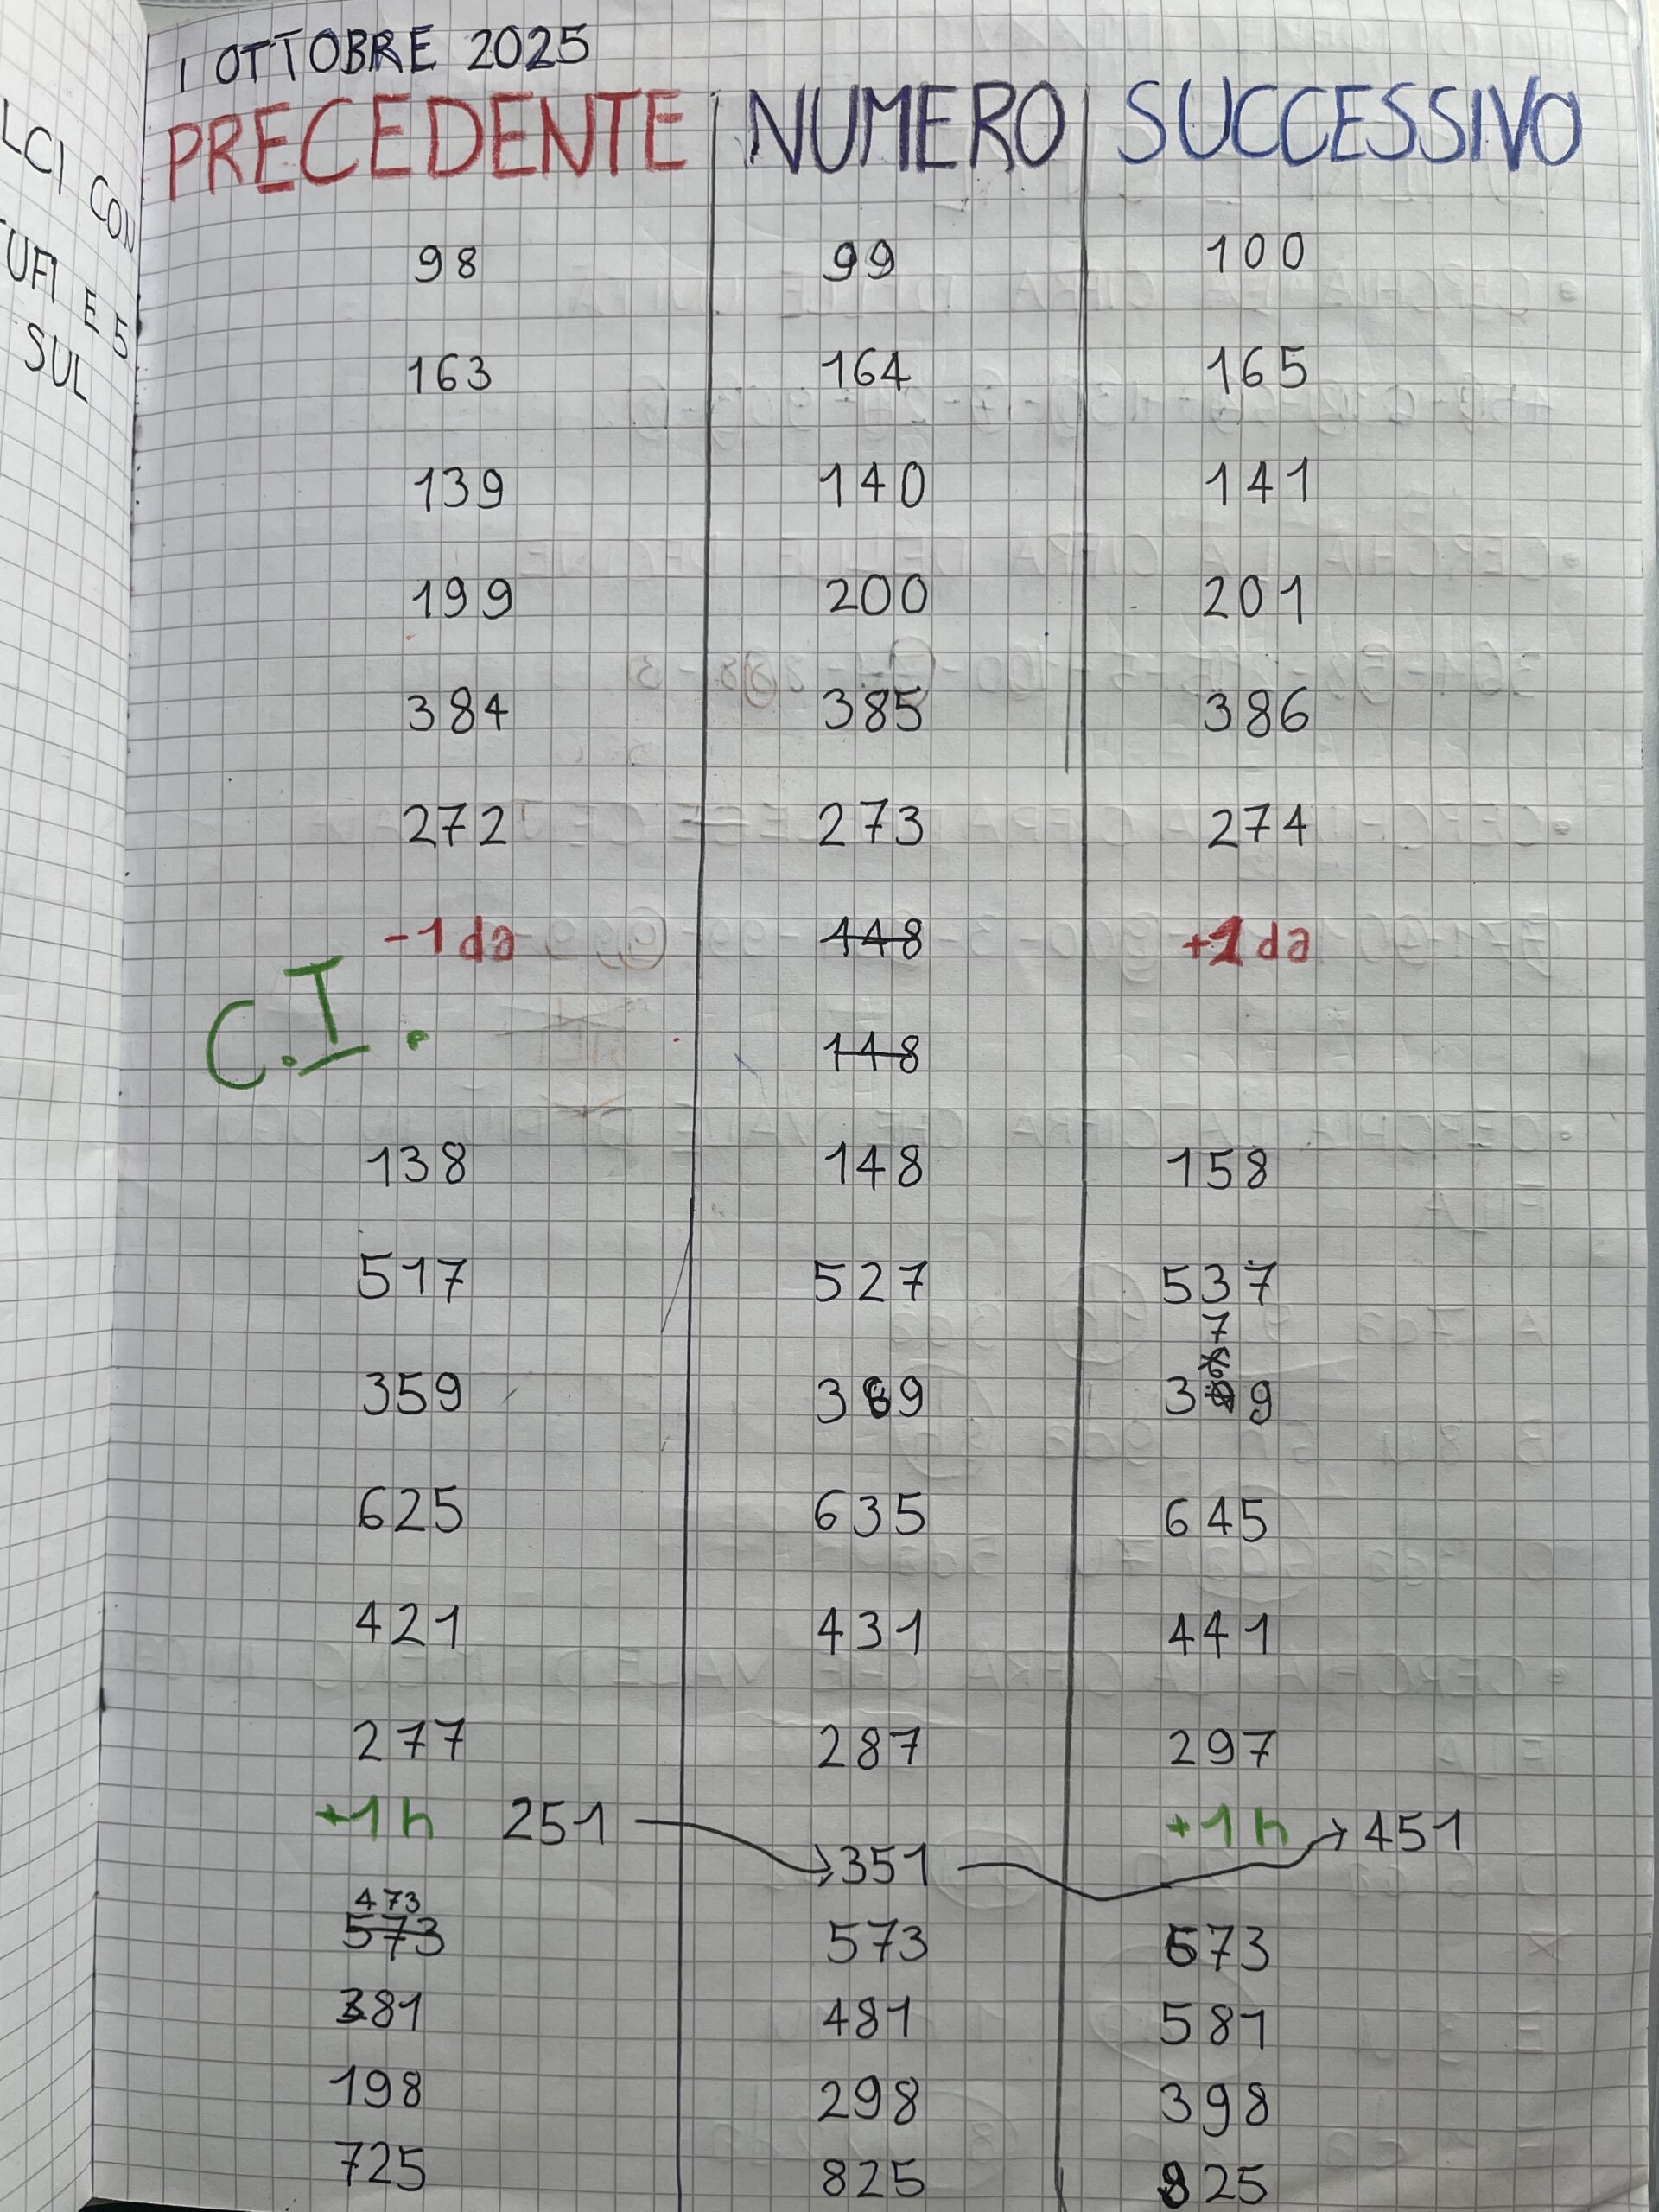 LCI CON
TUFI E 5
SUL
1 OTTOBRE 2025
PRECEDENTE NUMERO SUCCESSIVO
98 99 100
163 164 165
139 140 141
199 200 201
384 385 386
272 273 274
-1da 148 +1da
C.I. 148
138 148 158
517 527 537
7
359 369 39
625 635 645
421 431 441
277 287 297
+1h 251 351 +1h 451
473
573 573 673
381 481 581
198 298 398
725 825 925